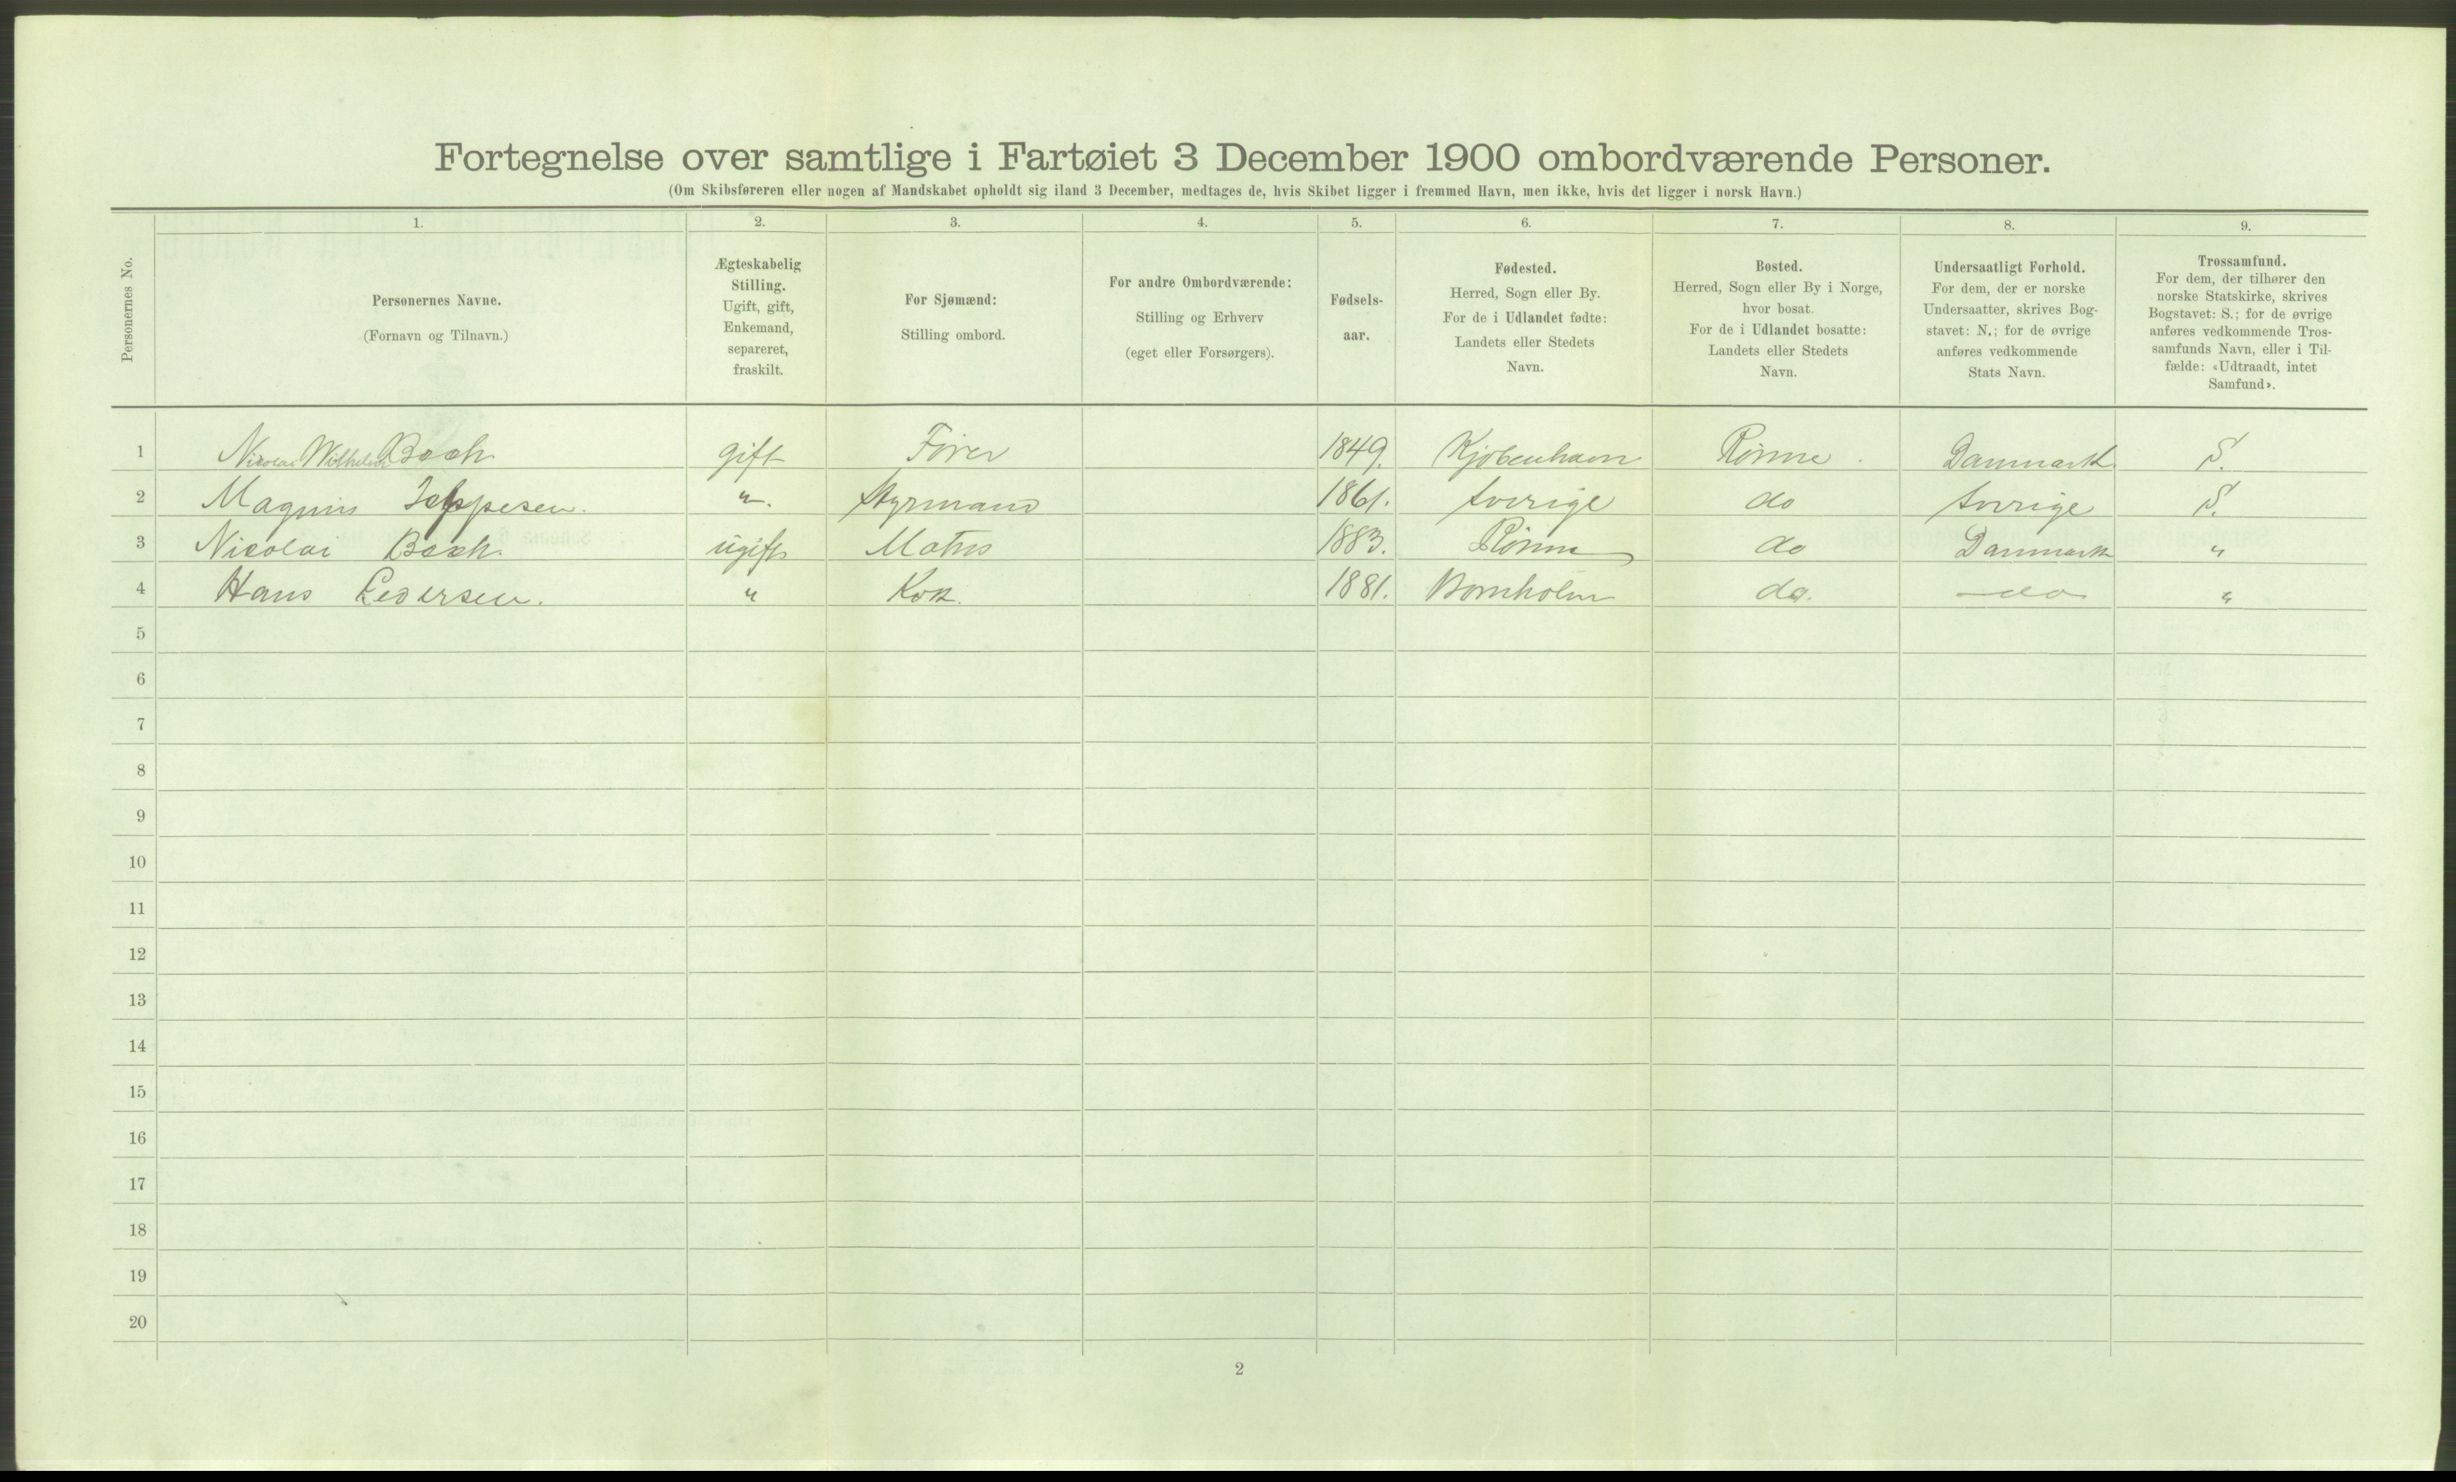 Fortegnelse over samtlige i Fartøiet 3 December 1900 ombordværende Personer.
(Om Skibsføreren eller nogen af Mandskabet opholdt sig iland 3 December, medtages de, hvis Skibet ligger i fremmed Havn, men ikke, hvis det ligger i norsk Havn.)
Personernes No.
1. 2. 3. 4. 5. 6. 7. 8. 9.
Personernes Navne.
(Fornavn og Tilnavn.)
Ægteskabelig
Stilling.
Ugift, gift,
Enkemand,
separeret,
fraskilt.
For Sjømænd:
Stilling ombord.
For andre Ombordværende:
Stilling og Erhverv
(eget eller Forsørgers).
Fødsels-
aar.
Fødested.
Herred, Sogn eller By.
For de i Udlandet fødte:
Landets eller Stedets
Navn.
Bosted.
Herred, Sogn eller By i Norge,
hvor bosat.
For de i Udlandet bosatte:
Landets eller Stedets
Navn.
Undersaatligt Forhold.
For dem, der er norske
Undersaatter, skrives Bog-
stavet: N.; for de øvrige
anføres vedkommende
Stats Navn.
Trossamfund.
For dem, der tilhører den
norske Statskirke, skrives
Bogstavet: S.; for de øvrige
anføres vedkommende Tros-
samfunds Navn, eller i Til-
fælde: «Udtraadt, intet
Samfund».
1 Nicolai Wilhelm Bech gift Fører 1849. Kjøbenhavn Rønne. Danmark S.
2 Magnus Jeppesen. " Styrmand 1861. Sverige do Sverige S.
3 Nicolai Bech. ugift Matros 1883. Rønne do Danmark "
4 Hans Pedersen. " Kok. 1881. Bornholm do. do "
5
6
7
8
9
10
11
12
13
14
15
16
17
18
19
20
2